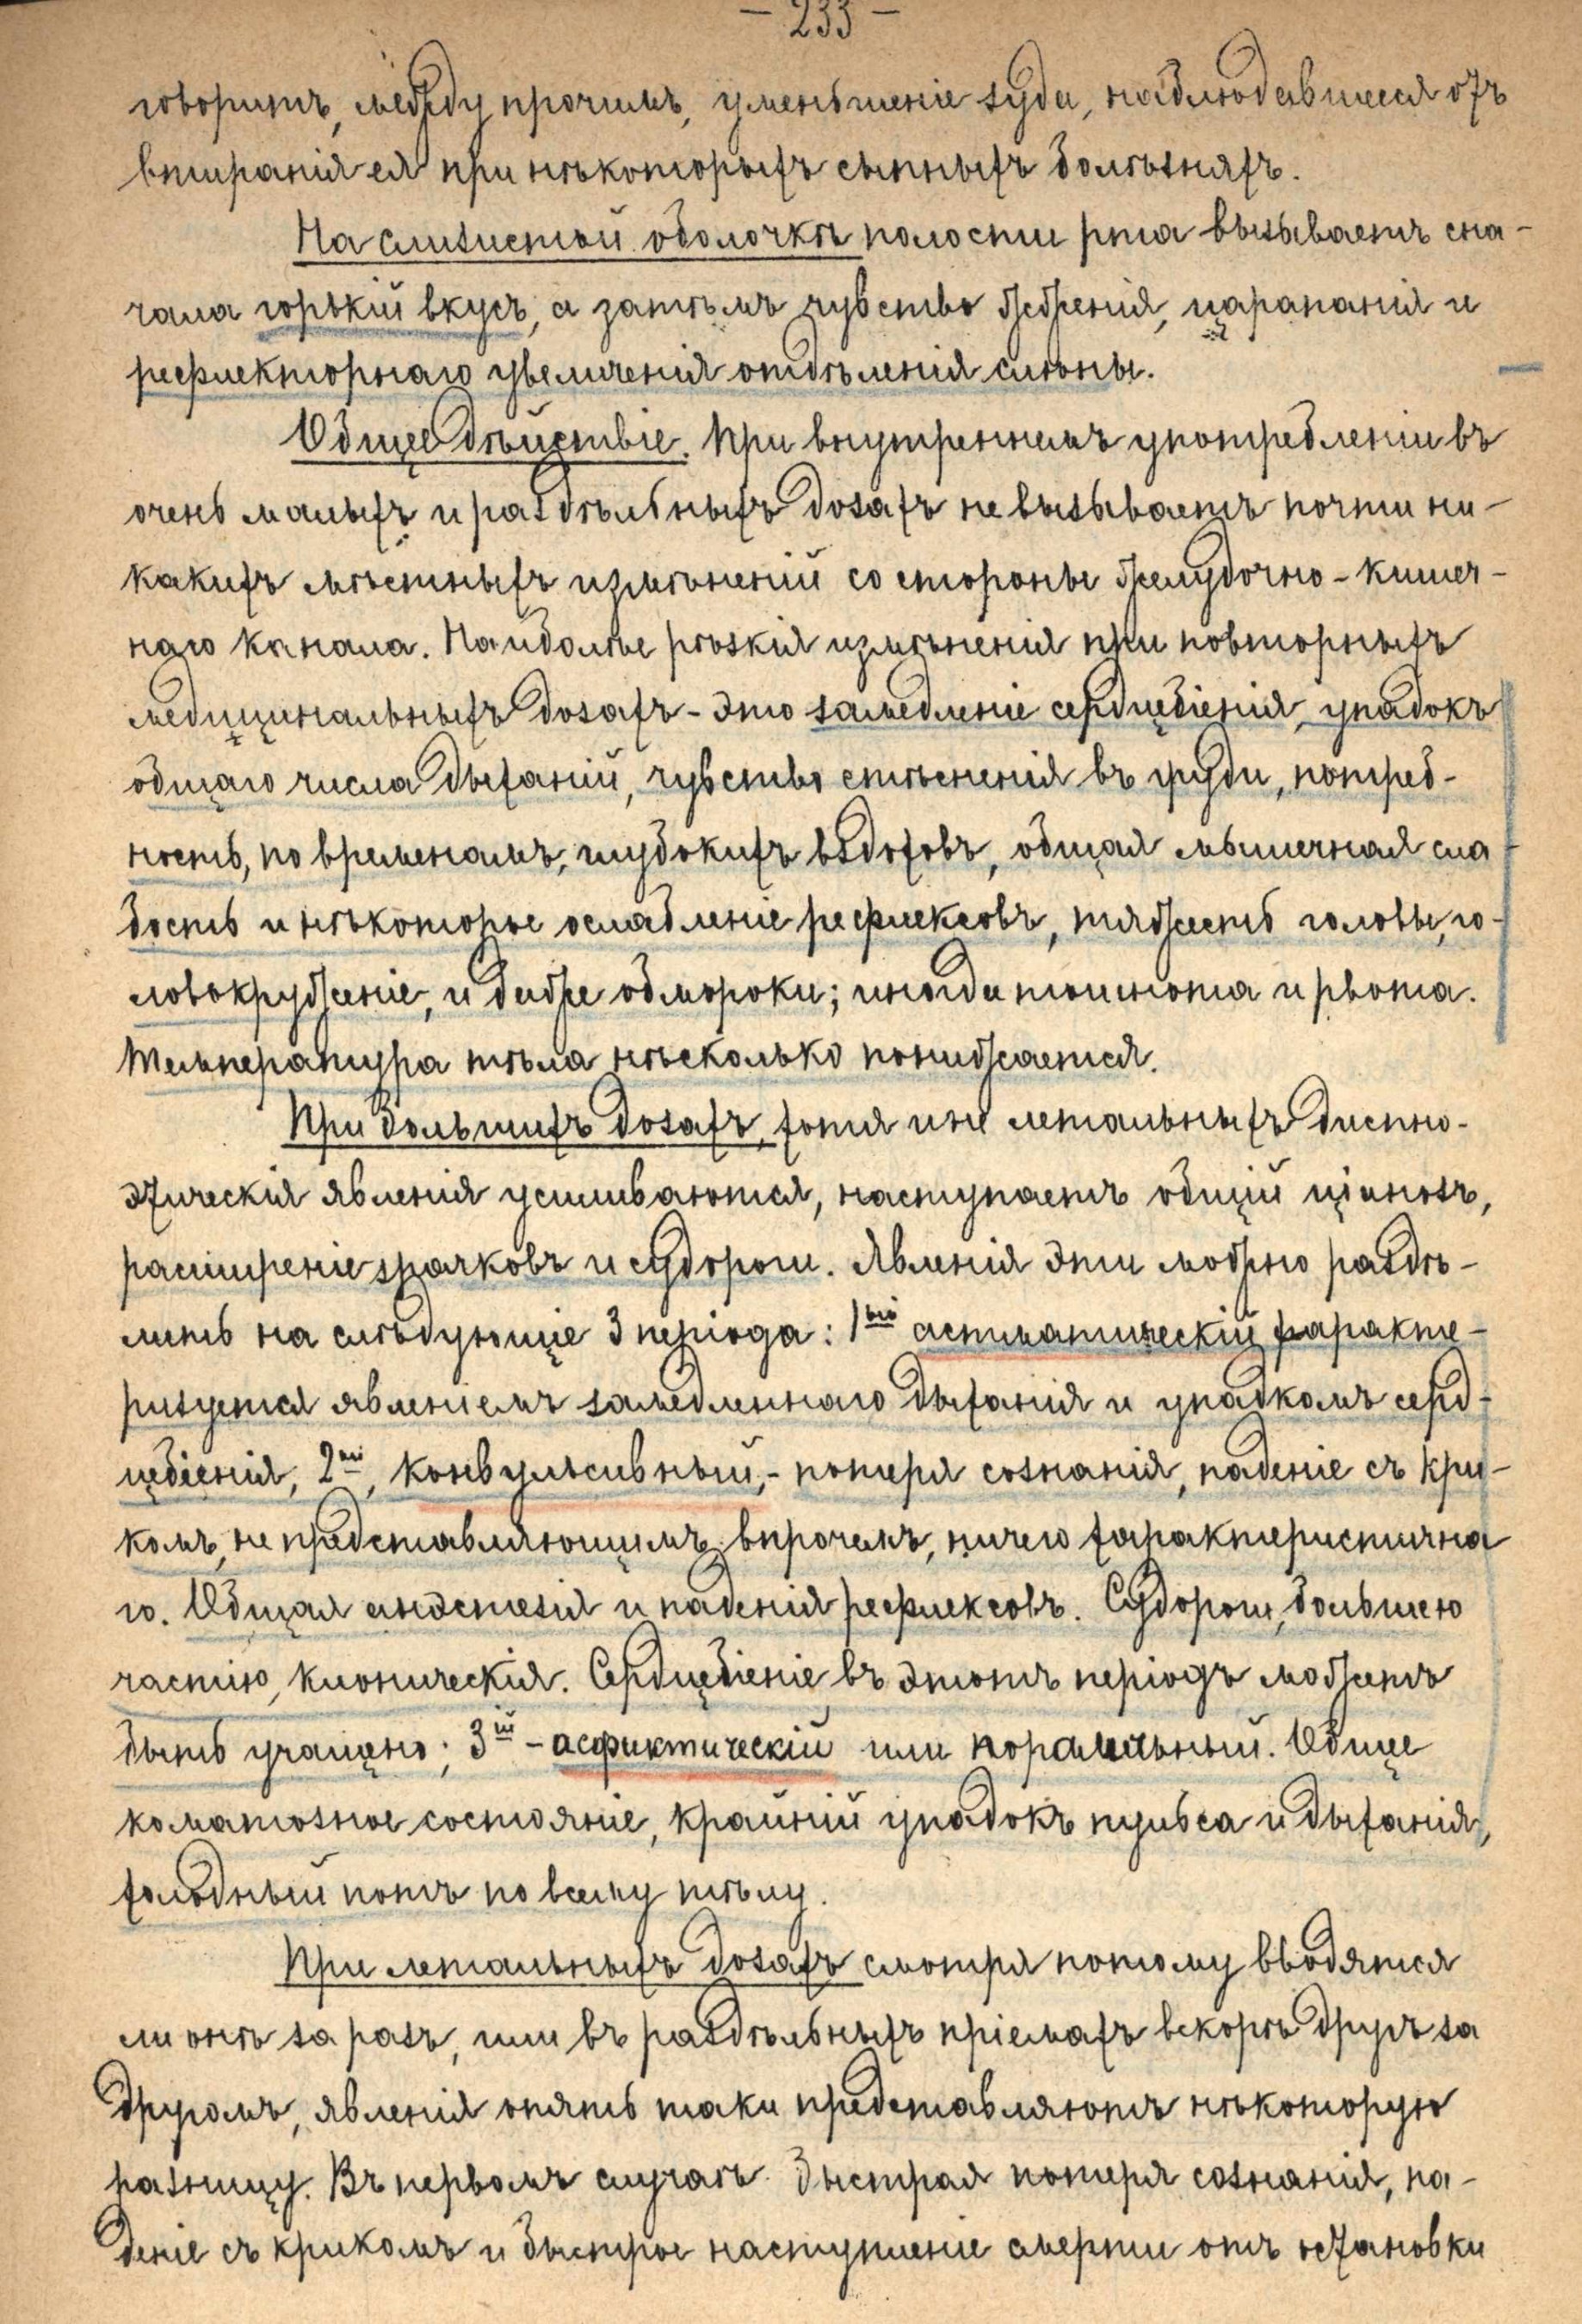 — 233 —
говоритъ, между прочимъ, уменьшеніе зуда, наблюдавшееся отъ
втиранія ея при нѣкоторыхъ сыпныхъ болѣзняхъ.
На слизистой оболочкѣ полости рта вызываетъ сна-
чала горькій вкусъ, а затѣмъ чувство жженія, царапанія и
рефлекторнаго увеличенія отдѣленія слюны.
Общее дѣйствіе. При внутреннемъ употребленіи въ
очень малыхъ и раздѣльныхъ дозахъ не вызываетъ почти ни-
какихъ мѣстныхъ измѣненій со стороны желудочно-кишеч-
наго канала. Наиболѣе рѣзкія измѣненія при повторныхъ
медицинальныхъ дозахъ - это замедленіе сердцебіенія, упадокъ
общаго числа дыханій, чувство стѣсненія въ груди, потреб-
ность, по временамъ, глубокихъ вздоховъ, общая мышечная сла-
бость и нѣкоторое ослабленіе рефлексовъ, тяжесть головы, го-
ловокруженіе, и даже обмороки; иногда тошнота и рвота.
Температура тѣла нѣсколько понижается.
При большихъ дозахъ, хотя и не летальныхъ диспно-
этическія явленія усиливаются, наступаетъ общій ціанозъ,
расширеніе зрачковъ и судороги. Явленія эти можно раздѣ-
лить на слѣдующіе 3 періода: 1ый астматическій характе-
ризуется явленіемъ замедленнаго дыханія и упадкомъ серд-
цебіенія, 2ой, конвульсивный,- потеря сознанія, паденіе съ кри-
комъ, не представляющимъ впрочемъ, ничего характеристична
го. Общая анэстезія и паденія рефлексовъ. Судороги, большею
частію, клоническія. Сердцебіеніе въ этотъ періодъ можетъ
быть учащено; 3ій - асфиктическій или паралильный. Общее
коматозное состояніе, крайній упадокъ пульса и дыханія,
холодный потъ по всему тѣлу.
При летальныхъ дозахъ смотря потому вводятся
ли онѣ за разъ, или въ раздѣльныхъ пріемахъ вскорѣ другъ за
другомъ, явленія опять таки представляютъ нѣкоторую
разницу. Въ первомъ случаѣ быстрая потеря сознанія, па-
деніе съ крикомъ и быстрое наступленіе смерти отъ остановки